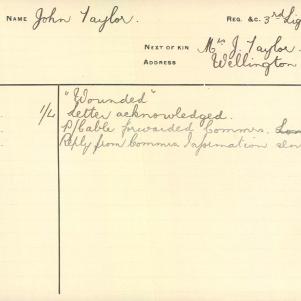 NAME John Taylor. REG. &C. 3rd Lig
NEXT OF KIN Mrs J. Taylor.
ADDRESS Wellington
"Wounded"
1/4 Letter acknowledged.
P/Cable forwarded Commrs.
Reply from Commrs Information